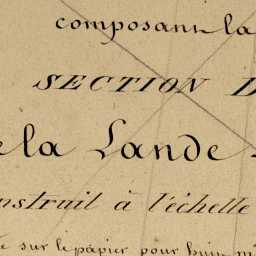 composant la
SECTION D
la Lande
nstruit à l'échelle
sur le papier pour huit m